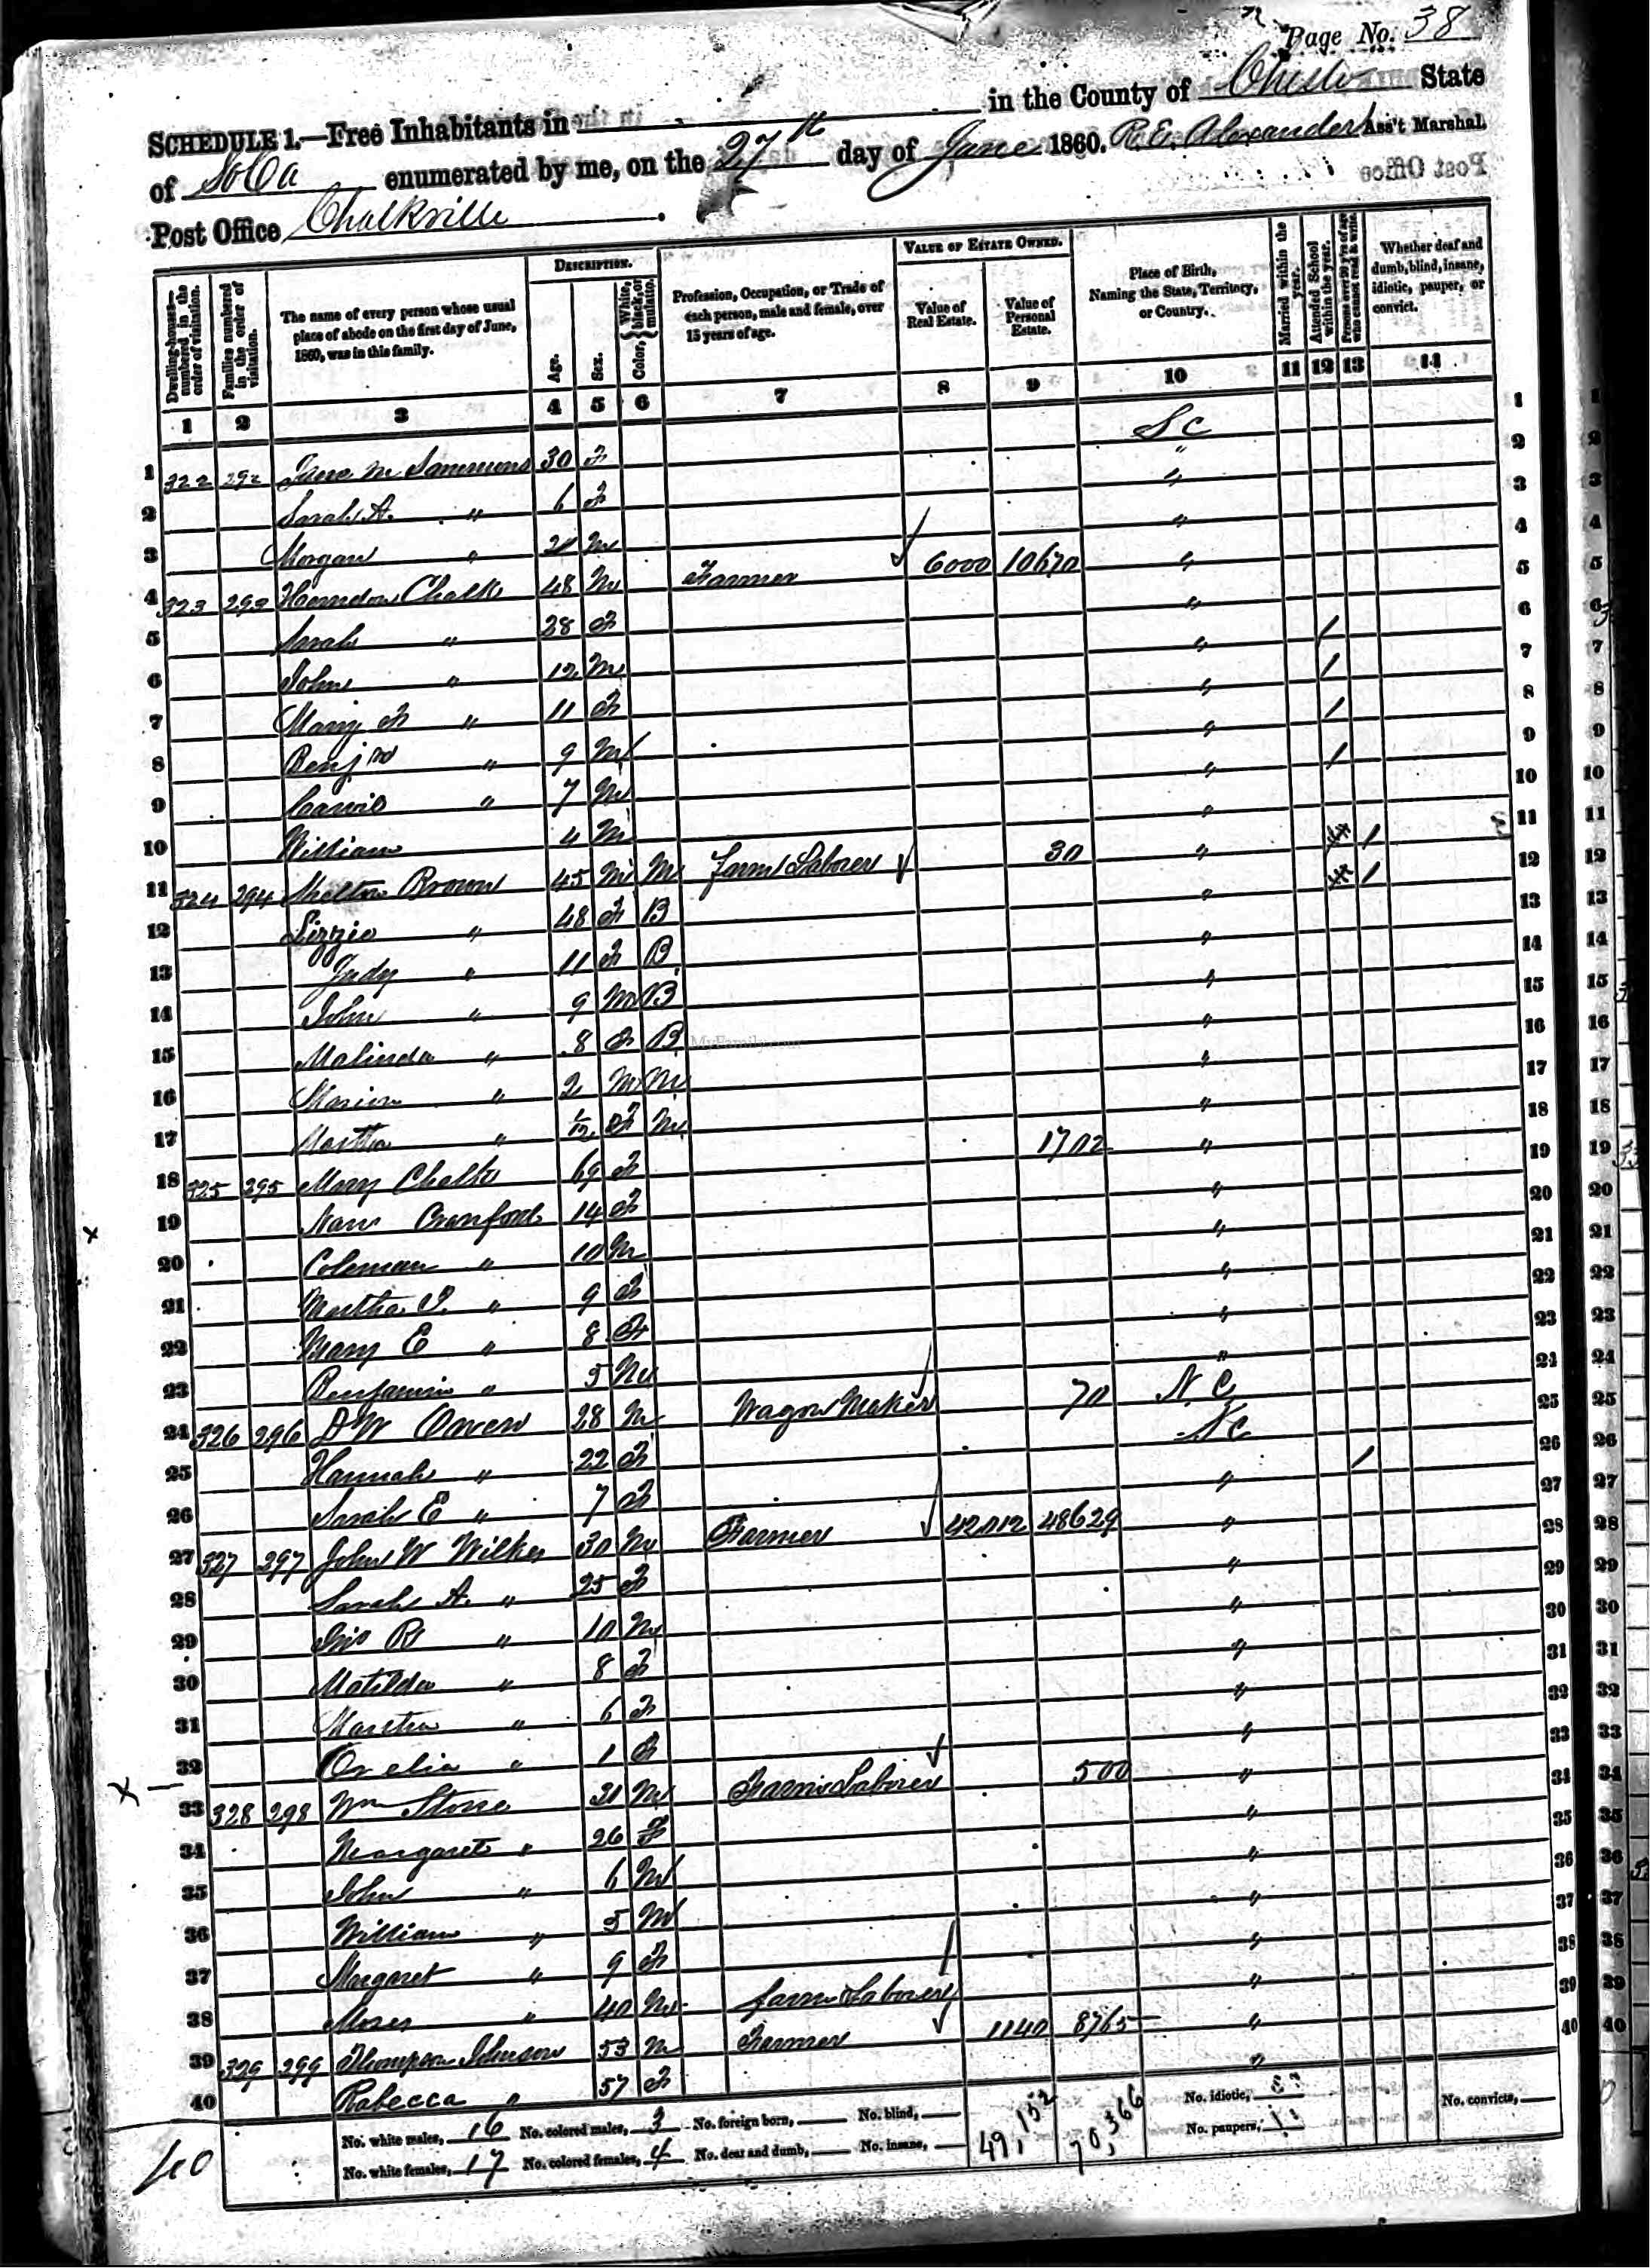 Page No. 38
SCHEDULE 1.—Free Inhabitants in in the County of Chester State
of So Ca enumerated by me, on the 27th day of June 1860. R. E. Alexander Ass't Marshal.
Post Office Chalkville
Post Office
Dwelling-houses—numbered in the order of visitation.
Families numbered in the order of visitation.
The name of every person whose usual place of abode on the first day of June, 1860, was in this family.
DESCRIPTION.
Age.
Sex.
Color, White, black, or mulatto.
Profession, Occupation, or Trade of each person, male and female, over 15 years of age.
VALUE OF ESTATE OWNED.
Value of Real Estate.
Value of Personal Estate.
Place of Birth, Naming the State, Territory, or Country.
Married within the year.
Attended School within the year.
Persons over 20 y'rs of age who cannot read & write.
Whether deaf and dumb, blind, insane, idiotic, pauper, or convict.
1 2 3 4 5 6 7 8 9 10 11 12 13 14
1 322 292 Jane M Sammons 30 F S C 1
2 Sarah A. " 6 F " 2
3 Morgan " M " 3
4 323 293 Herndon Chalk 48 M Farmer 6000 10670 " 4
5 Sarah " 28 F " 5
6 John " 12 M " / 6
7 Mary F " 11 F " / 7
8 Benjn " 9 M " / 8
9 " 7 M " / 9
10 William 4 M " 10
11 324 294 Melton Brown 45 M M Farm Laborer 30 " / 11
12 Lizzie " 48 F B " / 12
13 Judy " 11 F B " 13
14 John " 9 M B " 14
15 Malinda " 8 F B " 15
16 Marion " 2 M M " 16
17 Martha " 1/12 F M " 17
18 325 295 Mary Chalk 69 F 1702 " 18
19 Crawford 14 F " 19
20 Coleman " 10 M " 20
21 Martha J. " 9 F " 21
22 Mary E " 8 F " 22
23 Benjamin " 5 M " 23
24 326 296 D W Owen 28 M Wagon Maker 70 N C 24
25 Hannah " 22 F S C 25
26 Sarah E " 7 F " / 26
27 327 297 John W Wilkes 30 M Farmer 42012 48629 " 27
28 Sarah A. " 25 F " 28
29 Jno R " 10 M " 29
30 Matilda " 8 F " 30
31 Martha " 6 F " 31
32 Orelia " 1 F " 32
33 328 298 Wm Stone 31 M Farm Laborer 500 " 33
34 Margaret " 26 F " 34
35 John " 6 M " 35
36 William " 5 M " 36
37 Margaret " 9 F " 37
38 Moses " 40 M Farm Laborer " 38
39 329 299 Thompson Johnson 53 M Farmer 1140 8765 " 39
40 Rabecca " 57 F " 40
No. white males, 16 No. colored males, 3 No. foreign born, No. blind, 49,152 70,366 No. idiotic,
No. white females, 17 No. colored females, 4 No. deaf and dumb, No. insane, No. paupers, No. convicts,
40
MyFamily.com